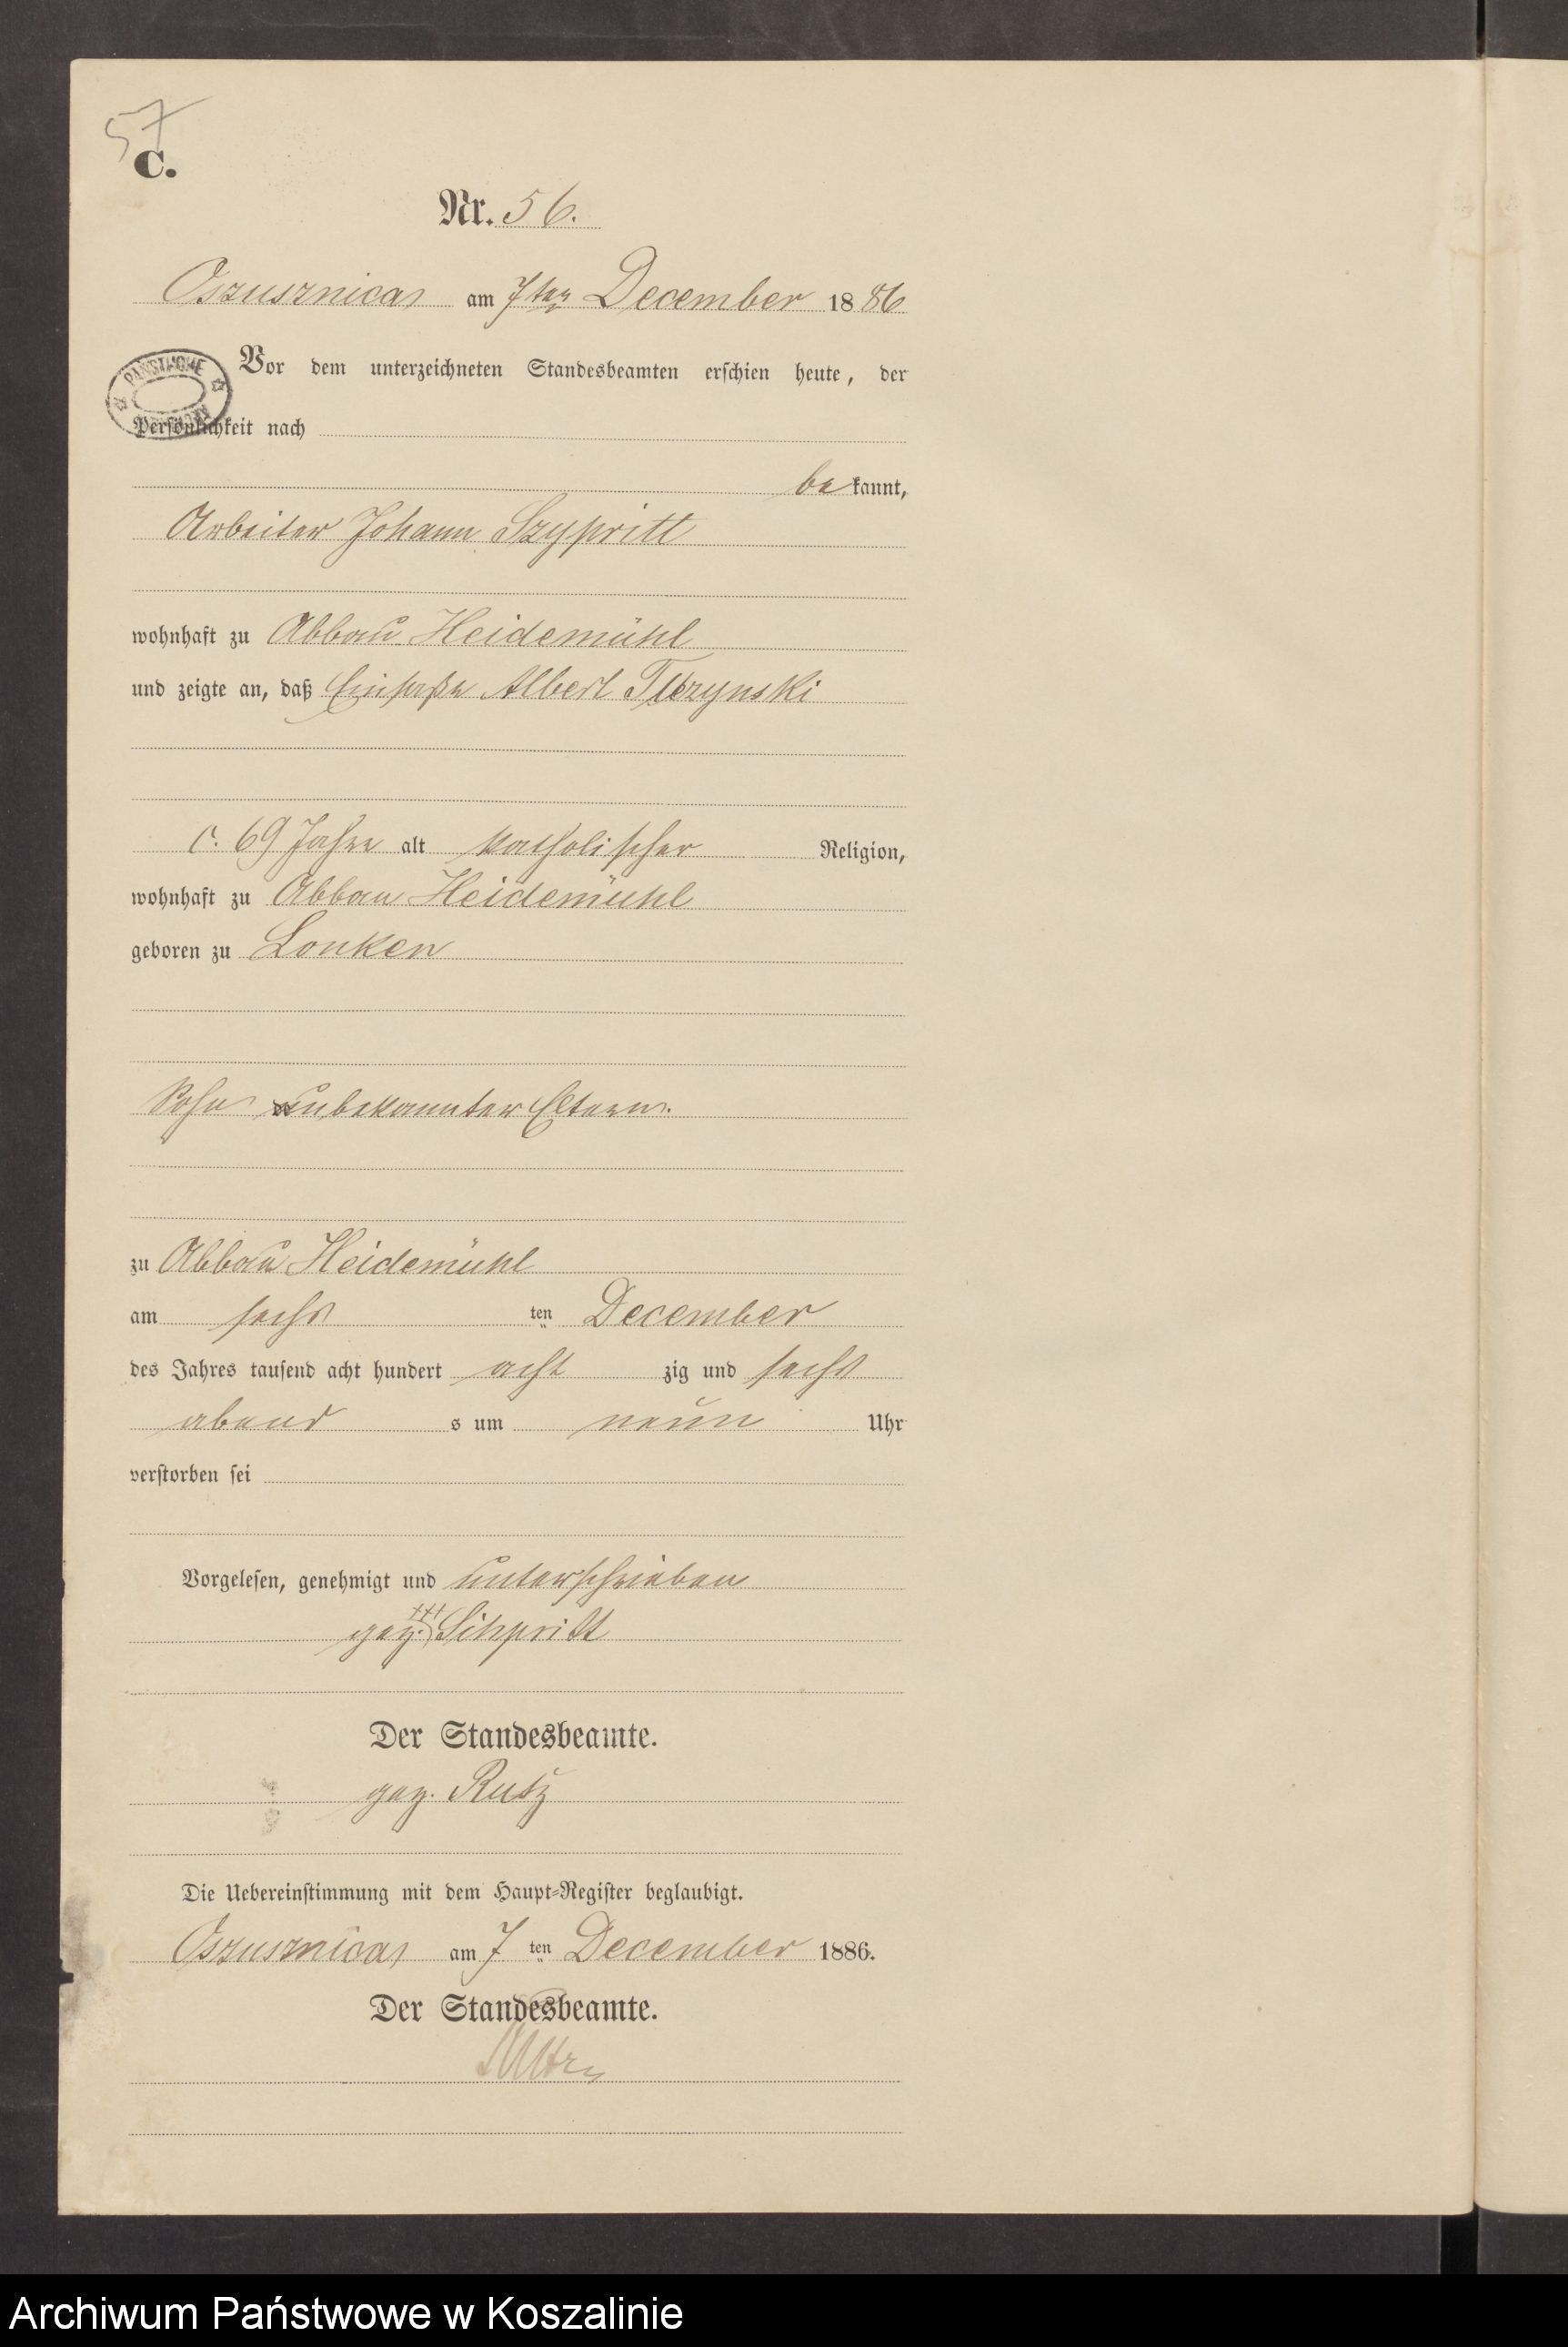 57
C.
Nr. 56.
Oszusznica am 7ten December 1886
PAŃSTWOWE
Vor dem unterzeichneten Standesbeamten erschien heute, der
Persönlichkeit nach
bekannt,
Arbeiter Johann Szypritt
wohnhaft zu Abbau Heidemühl
und zeigte an, daß Einsaße Albert
c. 69 Jahre alt katholischer Religion,
wohnhaft zu Abbau Heidemühl
geboren zu Lonken
Sohn unbekannter Eltern.
zu Abbau Heidemühl
am sechs ten December
des Jahres tausend acht hundert acht zig und sechs
abend s um neun Uhr
verstorben sei
Vorgelesen, genehmigt und unterschrieben
+++
gez.
Der Standesbeamte.
gez. Rutz
Die Uebereinstimmung mit dem Haupt-Register beglaubigt.
Oszusznica am 7 ten December 1886.
Der Standesbeamte.
Archiwum Państwowe w Koszalinie